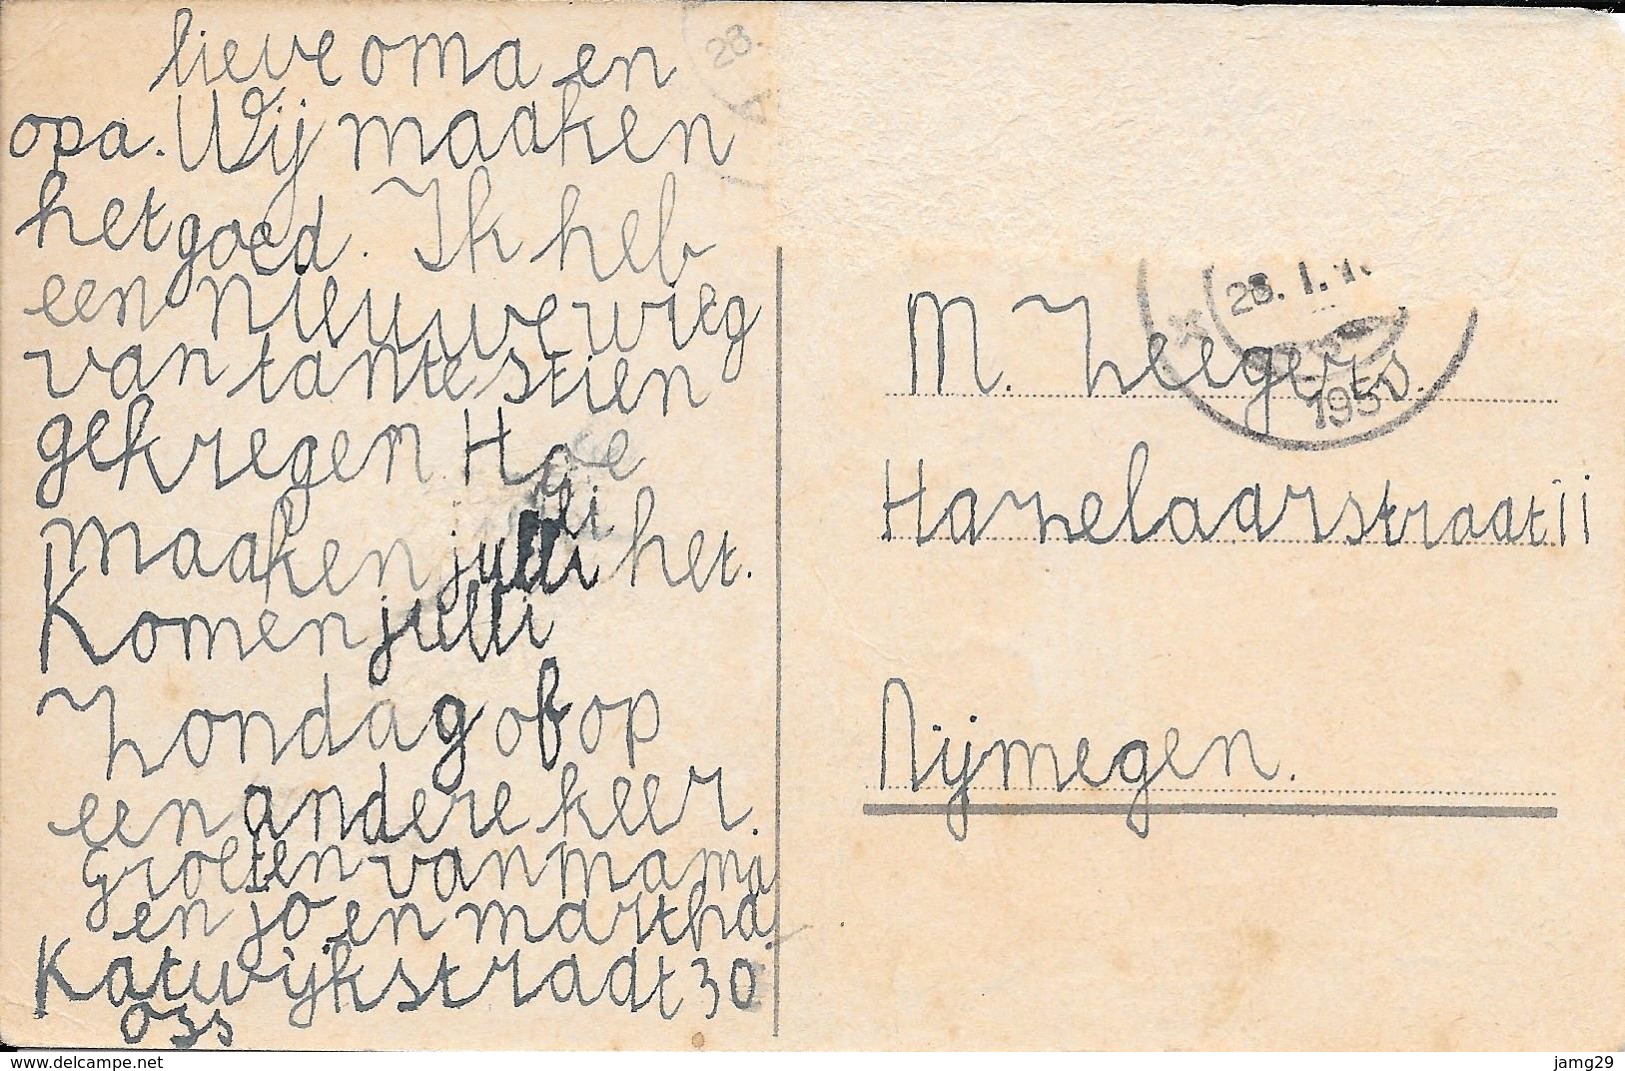 lieve oma en
opa. Wij maaken
het goed. Ik heb
een nieuwe wieg
van tante stien
gekregen Hoe
maaken julli het.
Komen julli
Zondag of op
een andere keer.
groeten van mama
en jo en martha.
Katwijkstraat 30
oss
28.
28. I.
195
M. Zeegers.
Hazelaarstraat 11
Nijmegen.
www.delcampe.net
jamg29